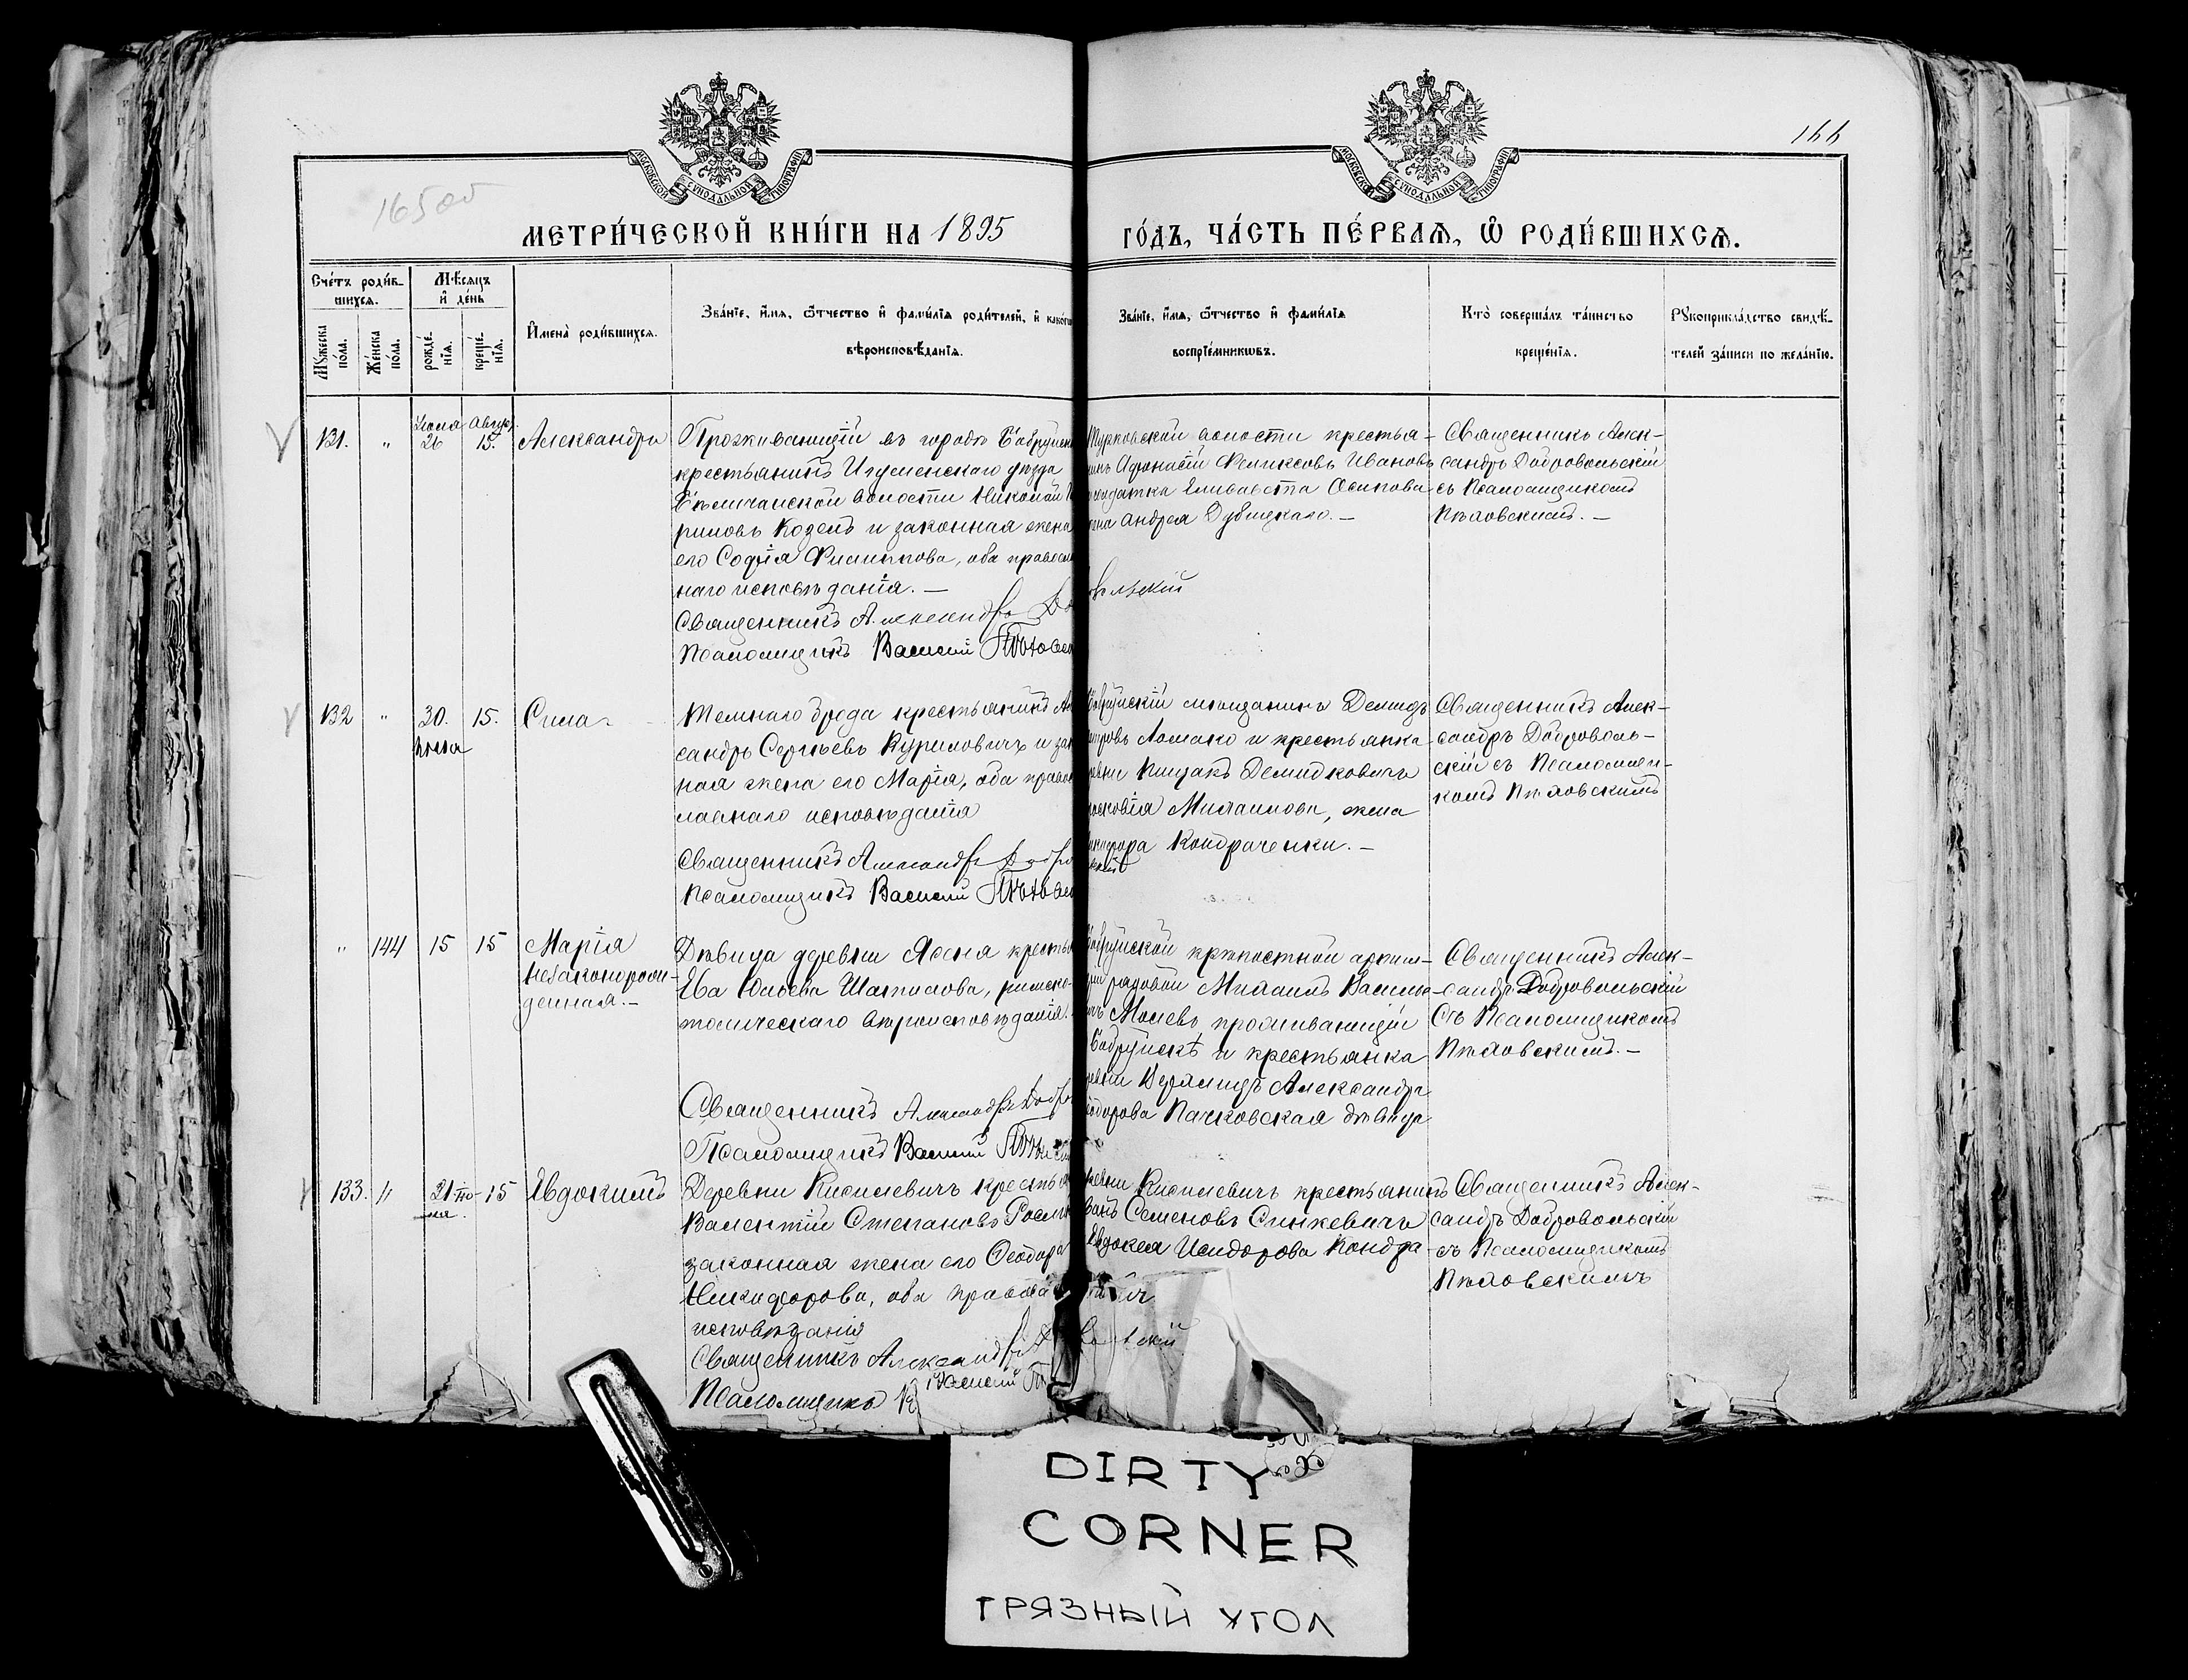 166
16500
МОСКОВСКОЙ СѴНОДАЛЬНОЙ ТИПОГРАФІИ
МОСКОВСКОЙ СѴНОДАЛЬНОЙ ТИПОГРАФІИ
МЕТРИ́ЧЕСКОЙ КНИ́ГИ НА 1895
ГО́ДЪ, ЧА́СТЬ ПЕ́РВАѦ, Ѡ҆ РОДИ́ВШИХСѦ.
Сче́тъ роди́в-
шихся.
Мѣ́сяцъ
и҆ де́нь
Мꙋ́жеска по́ла.
Же́нска по́ла.
рожде́нїя.
креще́нїя.
И҆мена̀ роди́вшихся.
Зва́нїе, и҆́мя, ѻ҆́тчество и҆ фами́лїя роди́телей, и҆ како́гѡ
вѣроисповѣ́данїя.
Зва́нїе, и҆́мя, ѻ҆́тчество и҆ фами́лїя
воспрїе́мникѡвъ.
Кто̀ соверша́лъ та́инство
креще́нїя.
Рꙋкоприкла́дство свидѣ́-
телей за́писи по жела́нїю.
131. " Іюля 26 Авгус. 15. Александръ
Проживающій въ городѣ Бобруйс
крестьянинъ Игуменскаго уѣзда
Бѣличанской волости Николай
риловъ Козелъ и законная жена
его Софія Филиппова, оба правосл
наго исповѣданія. —
Священникъ Александръ До
Псаломщикъ Василій Пѣховс
Турковской волости крестья-
нинъ Афонасій Феликсовъ Ивановъ
солдатка Елисавета Осипова
жена Андрея Дубицкаго. —
вольскій
Священникъ Алек-
сандръ Добровольскій
съ Псаломщикомъ
Пѣховскимъ. —
132 " 30. іюля 15. Сила
Темнаго брода крестьянинъ Ал
сандръ Сергѣевъ Куриловичъ и зак
ная жена его Марія, оба право
славнаго исповѣданія
Священникъ Александръ Добро
Псаломщикъ Василій Пѣховс
Бобруйскій мѣщанинъ Демидъ
Петровъ Ломако и крестьянка
деревни Кищакъ Демидковичъ
Парасковія Михаилова, жена
Никифора Кондраченки. —
Священникъ Алек-
сандръ Доброволь-
скій съ Псаломщи-
комъ Пѣховскимъ
" 144 15 15 Марія
незаконорож-
денная. —
Дѣвица деревни Ясеня крестья
Ева Юльева Шатилова, римско-
толическаго вѣроисповѣданія.
Священникъ Александръ Добро
Псаломщикъ Василій Пѣховс
Бобруйской крѣпостной артил-
леріи рядовой Михаилъ Василь-
евъ Мосевъ, проживающій
Бобруйскѣ и крестьянка
Александра
Ѳеодорова Пачковская дѣвица
Священникъ Алек-
сандръ Добровольскій
Съ Псаломщикомъ
Пѣховскимъ. —
133. " 21 іюля 15 Явдокимъ
Деревни Киселевичъ крестья
Валентій Степановъ Росл
законная жена его Ѳеодора
Никифорова, оба правосла
исповѣданія
Священникъ Александръ До
Псаломщикъ Василій
деревни Киселевичъ крестьянинъ
Иванъ Семеновъ Синкевичъ
Явдокея Исидорова Кондра
Священникъ Алек-
сандръ Добровольскій
съ Псаломщикомъ
Пѣховскимъ
DIRTY
CORNER
ГРЯЗНЫЙ УГОЛ